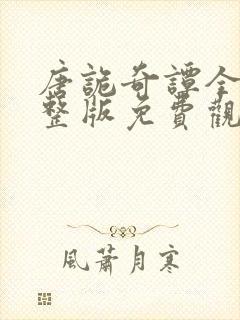 唐詭奇譚全
整版免費觀
風蕭月寒